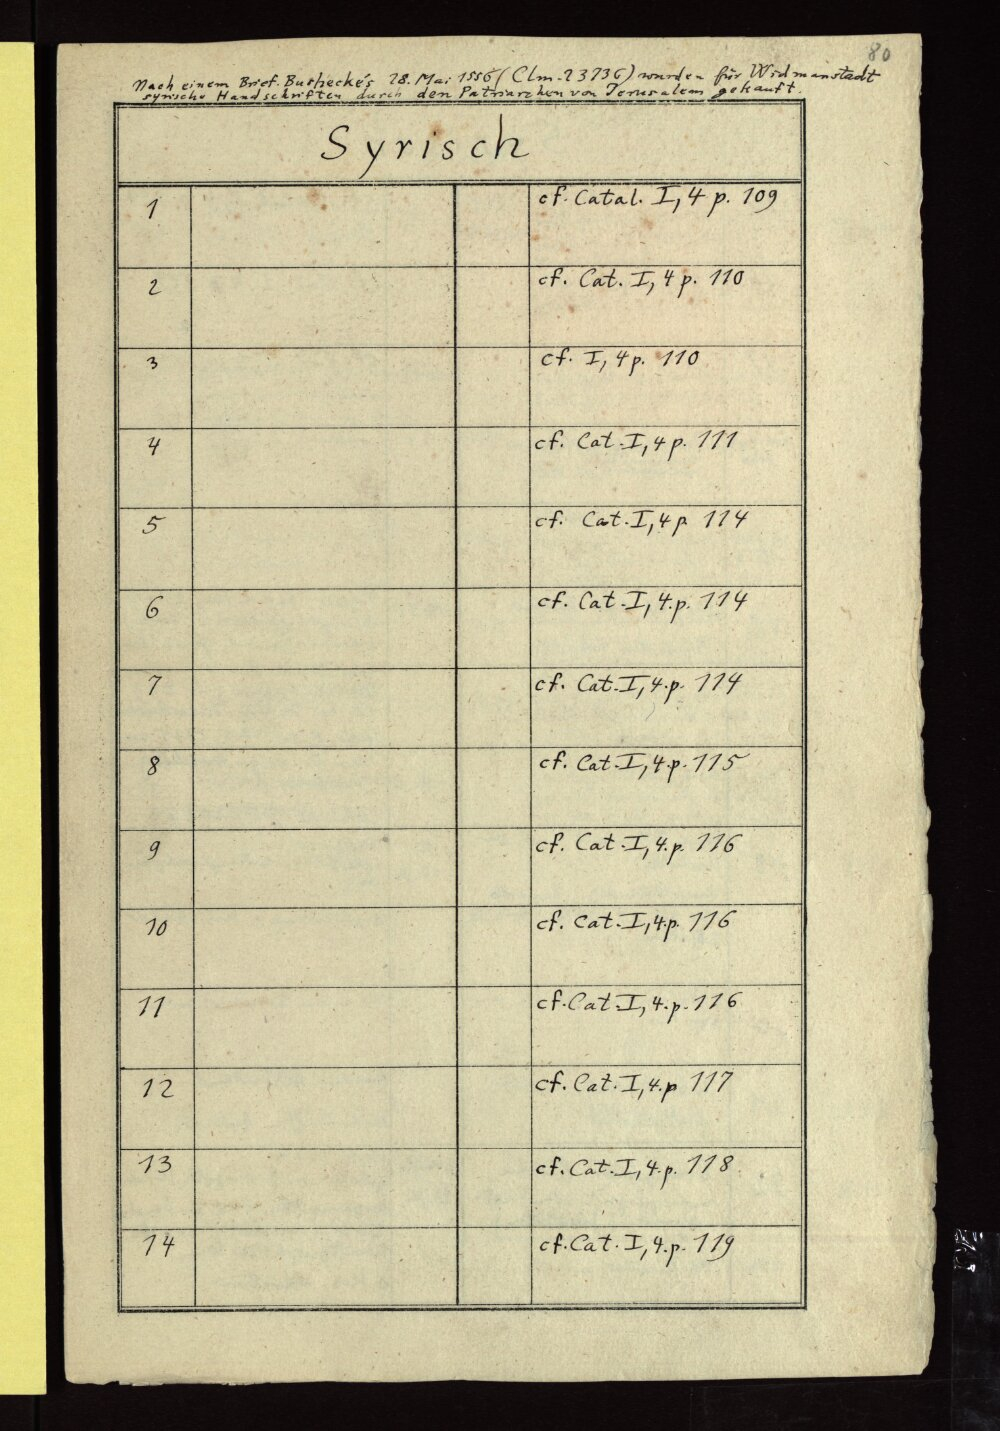 80
Nach einem Brief Busbecke's 28. Mai 1556 (Clm. 23736) wurden für Widmanstadt
syrische Handschriften durch den Patriarchen von Jerusalem gekauft.
Syrisch
1 cf. Catal. I, 4 p. 109
2 cf. Cat. I, 4 p. 110
3 cf. I, 4 p. 110
4 cf. Cat. I, 4 p. 111
5 cf. Cat. I, 4 p 114
6 cf. Cat. I, 4. p. 114
7 cf. Cat. I, 4. p. 114
8 cf. Cat. I, 4. p. 115
9 cf. Cat. I, 4. p. 116
10 cf. Cat. I, 4. p. 116
11 cf. Cat. I, 4. p. 116
12 cf. Cat. I, 4. p 117
13 cf. Cat. I, 4. p. 118
14 cf. Cat. I, 4. p. 119